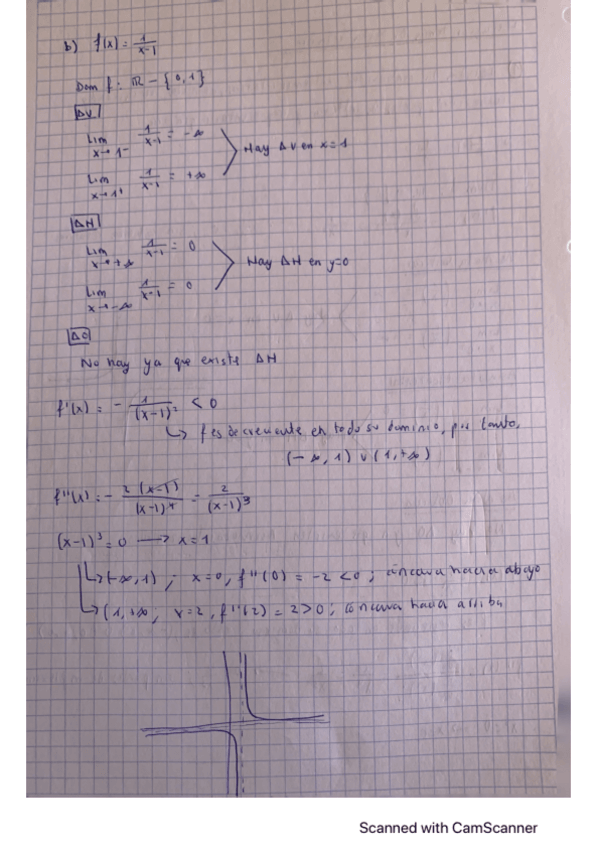 b) f(x) = 1/(x-1)
Dom f: ℝ - {0,1}
AV
Lim x→1⁻ 1/(x-1) = -∞
Lim x→1⁺ 1/(x-1) = +∞
Hay AV en x=1
AH
Lim x→+∞ 1/(x-1) = 0
Lim x→-∞ 1/(x-1) = 0
Hay AH en y=0
AO
No hay ya que existe AH
f'(x) = - 1/(x-1)² < 0
↳ f es decreciente en todo su dominio, por tanto,
(-∞, 1) ∪ (1, +∞)
f''(x) = - 2(x-1)/(x-1)⁴ = 2/(x-1)³
(x-1)³ = 0 → x = 1
↳ (-∞, 1) ; x=0, f''(0) = -2 < 0 ; cóncava hacia abajo
↳ (1, +∞ ; x=2, f''(2) = 2 > 0 ; cóncava hacia arriba
Scanned with CamScanner